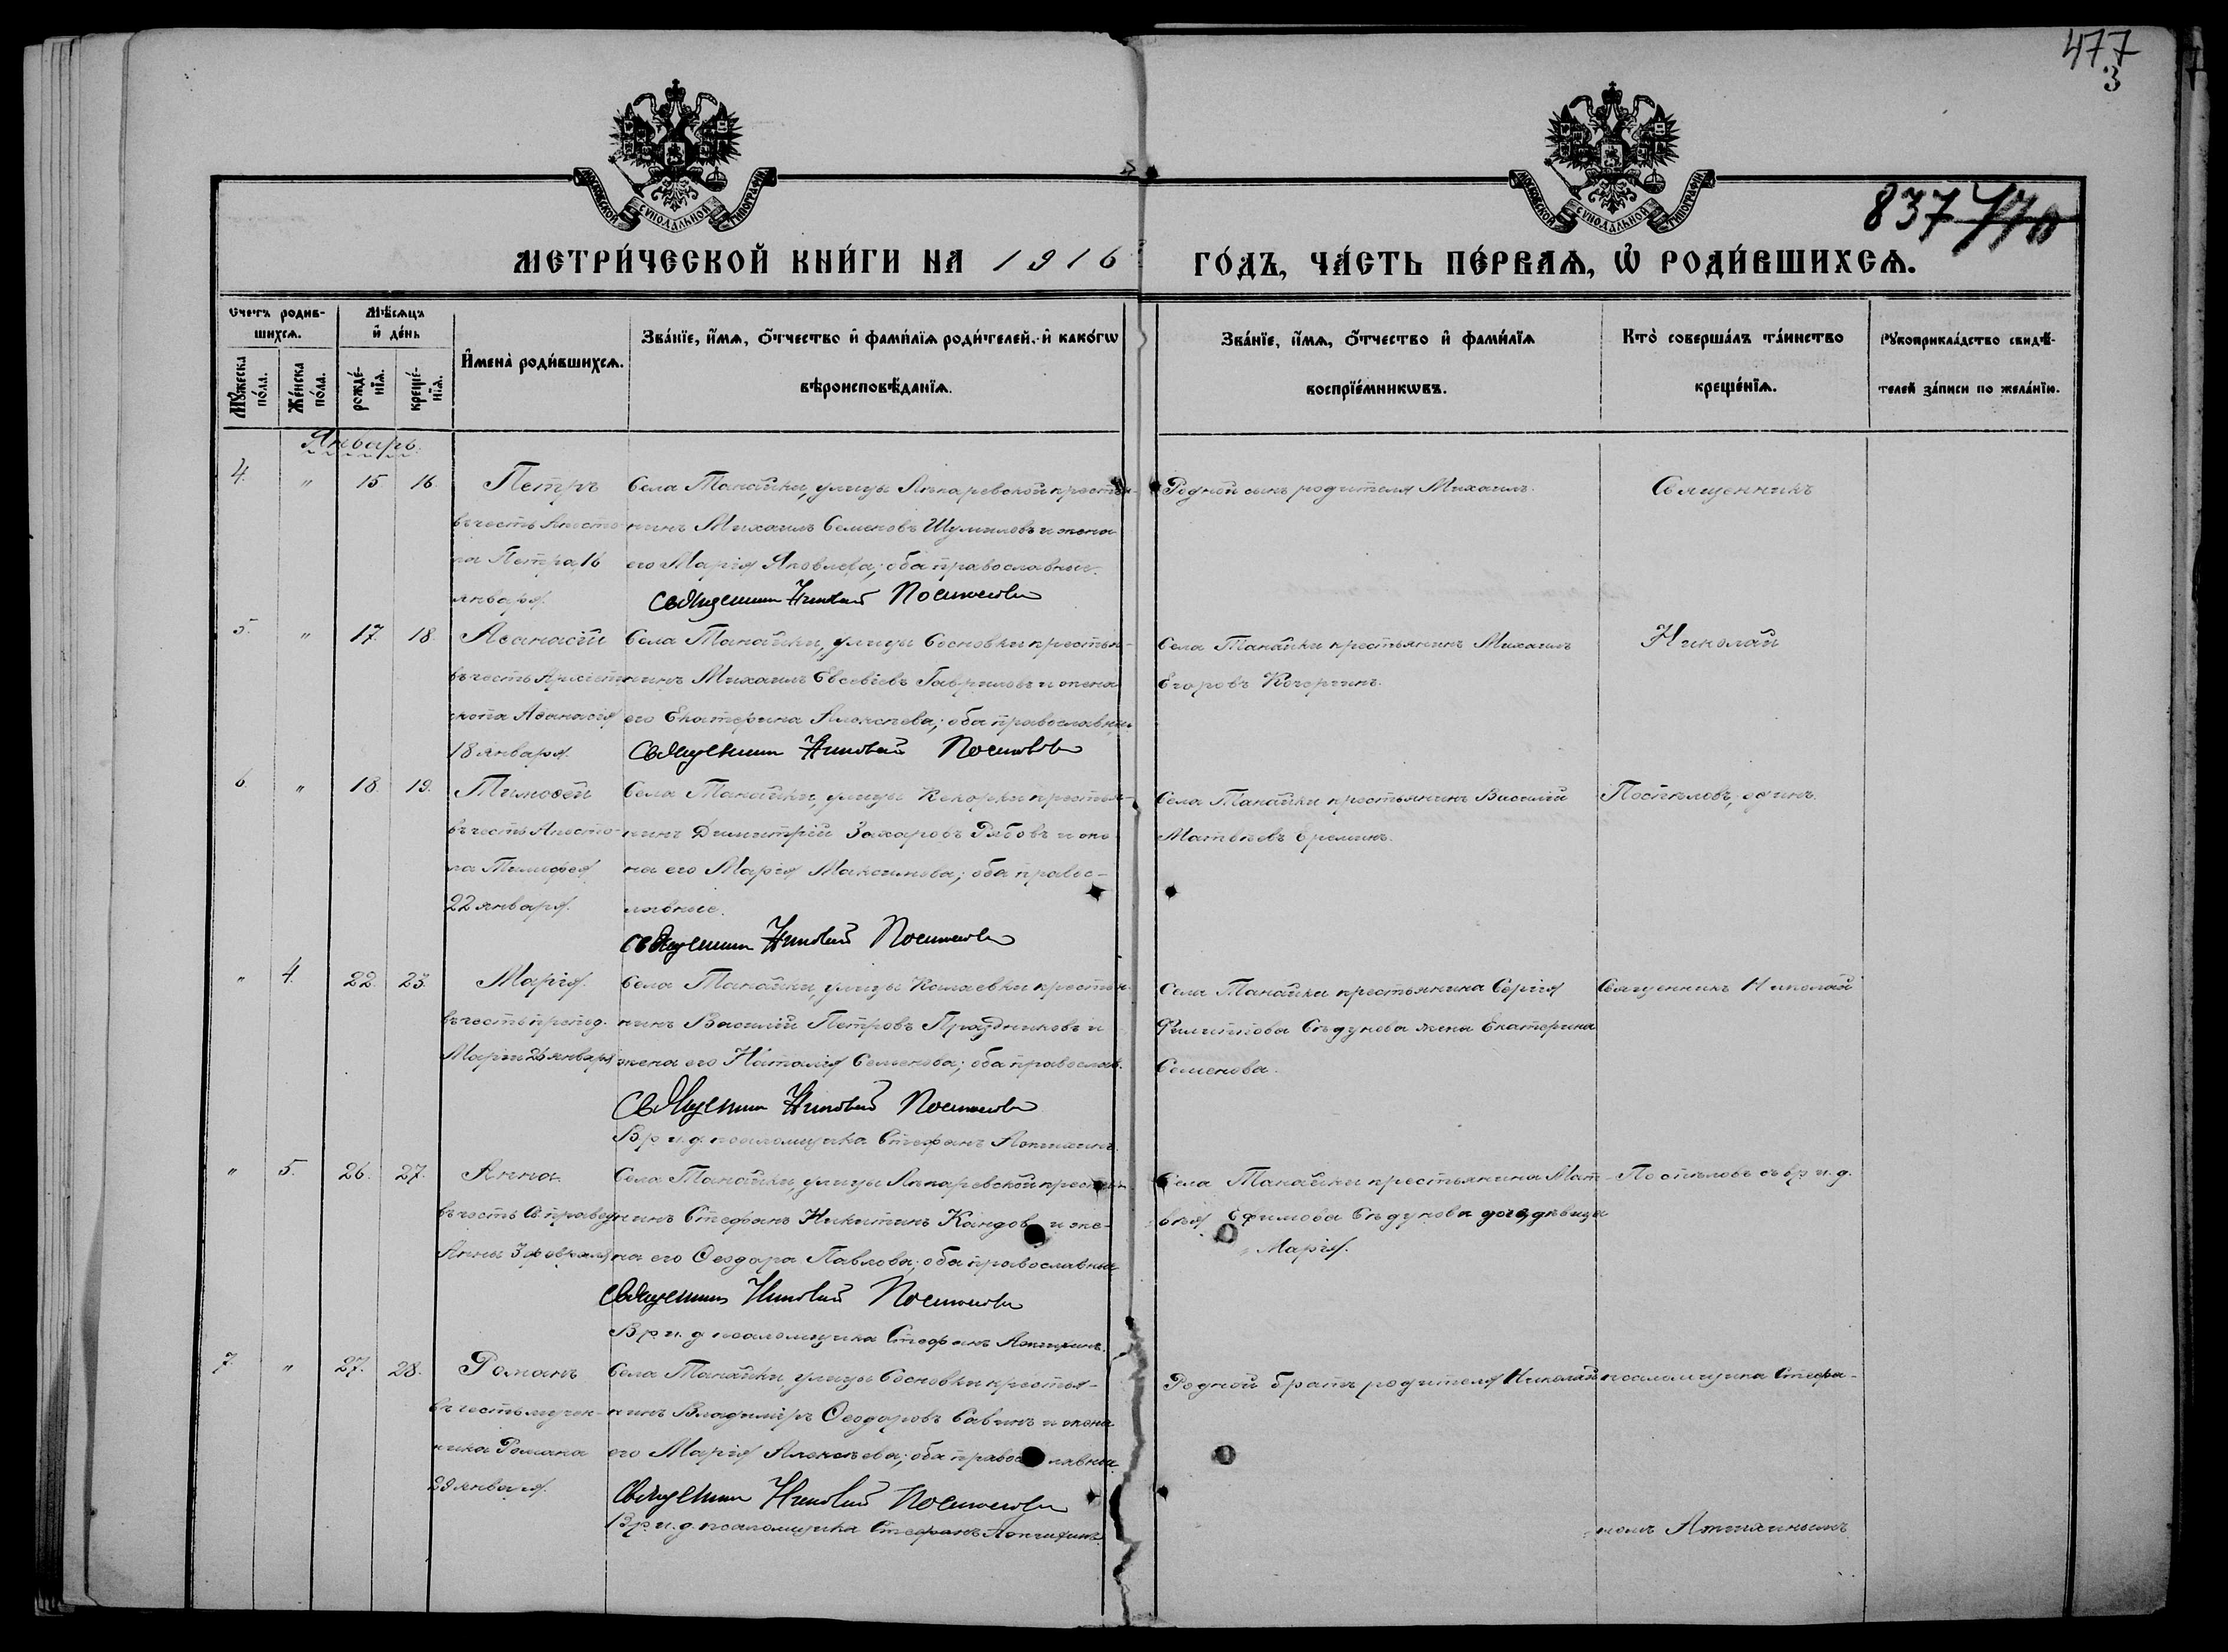 477
3
МОСКОВСКОЙ СѴНОДАЛЬНОЙ ТИПОГРАФІИ
МОСКОВСКОЙ СѴНОДАЛЬНОЙ ТИПОГРАФІИ
837 770
МЕТРИ́ЧЕСКОЙ КНИ́ГИ НА 1916 ГО́ДЪ, ЧА́СТЬ ПЕ́РВАѦ, Ѡ҆ РОДИ́ВШИХСѦ.
Счетъ родив-
шихсѧ.
Мꙋ́жеска по́ла.
Же́нска по́ла.
Мѣ́сѧцъ
и҆ де́нь
рожде́-
нїѧ.
креще́-
нїѧ.
И҆мена̀ роди́вшихсѧ.
Зва́нїе, и҆́мѧ, ѻ҆́тчество и҆ фами́лїѧ роди́телей, и҆ како́гѡ
вѣроисповѣ́данїѧ.
Зва́нїе, и҆́мѧ, ѻ҆́тчество и҆ фами́лїѧ
воспрїе́мникѡвъ.
Кто̀ соверша́лъ та́инство
креще́нїѧ.
Рꙋкоприкла́дство свидѣ́-
телей за́писи по жела́нїю.
Январь.
4. " 15 16. Петръ
въ честь Апосто-
ла Петра, 16
января.
Села Танайки, улицы Ляпаревской крестья-
нинъ Михаилъ Семеновъ Шумиловъ и жена
его Марія Яковлева; оба православные.
Священникъ Николай Поспѣловъ
Родной сынъ родителя Михаилъ.
Священникъ
5. " 17. 18. Аѳанасій
въ честь Архіепи-
скопа Аѳанасія
18 января.
Села Танайки, улицы Сосновки крестья-
нинъ Михаилъ Евсевіевъ Гавриловъ и жена
его Екатерина Алексѣева; оба православные.
Священникъ Николай Поспѣловъ
Села Танайки крестьянинъ Михаилъ
Егоровъ Кочергинъ.
Николай
6 " 18. 19. Тимоѳей
въ честь Апосто-
ла Тимоѳея
22 января.
Села Танайки, улицы Кекорки крестья-
нинъ Димитрій Захаровъ Рябовъ и же-
на его Марія Максимова; оба правос-
лавные.
Священникъ Николай Поспѣловъ
Села Танайки крестьянинъ Василій
Матвѣевъ Ереминъ.
Поспѣловъ, одинъ.
" 4. 22. 23. Марія.
въ честь препод.
Маріи 26 января
Села Танайки, улицы Колаевки крестья-
нинъ Василій Петровъ Праздниковъ и
жена его Наталія Семенова; оба православ.
Священникъ Николай Поспѣловъ
Вр. и. д. псаломщика Стефанъ Апихинъ.
Села Танайки крестьянина Сергія
Филиппова Сѣдунова жена Екатерина
Семенова.
Священникъ Николай
" 5. 26. 27. Анна
въ честь Св. правед.
Анны 3 февраля
Села Танайки, улицы Ляпаревской крестья-
нинъ Стефанъ Никитинъ Кандовъ и же-
на его Ѳеодора Павлова; оба православные
Священникъ Николай Поспѣловъ
Вр. и. д. псаломщика Стефанъ Апихинъ.
Села Танайки крестьянина Мат-
вѣя Ефимова Сѣдунова дочь, дѣвица
Марія.
Поспѣловъ съ вр. и. д.
7. " 27. 28. Романъ
въ честь мучен-
ника Романа
29 января.
Села Танайки, улицы Сосновки крестья-
нинъ Владиміръ Ѳеодоровъ Савинъ и жена
его Марія Алексѣева; оба православные
Священникъ Николай Поспѣловъ
Вр. и. д. псаломщика Стефанъ Апихинъ.
Родной братъ родителя Николай
псаломщика Стефа-
номъ Апихинымъ.